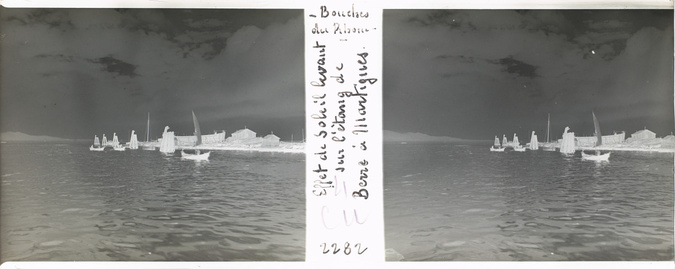 - Bouches
du Rhône -
Effet de Soleil levant
sur l'étang de
Berre à Martigues.
2282